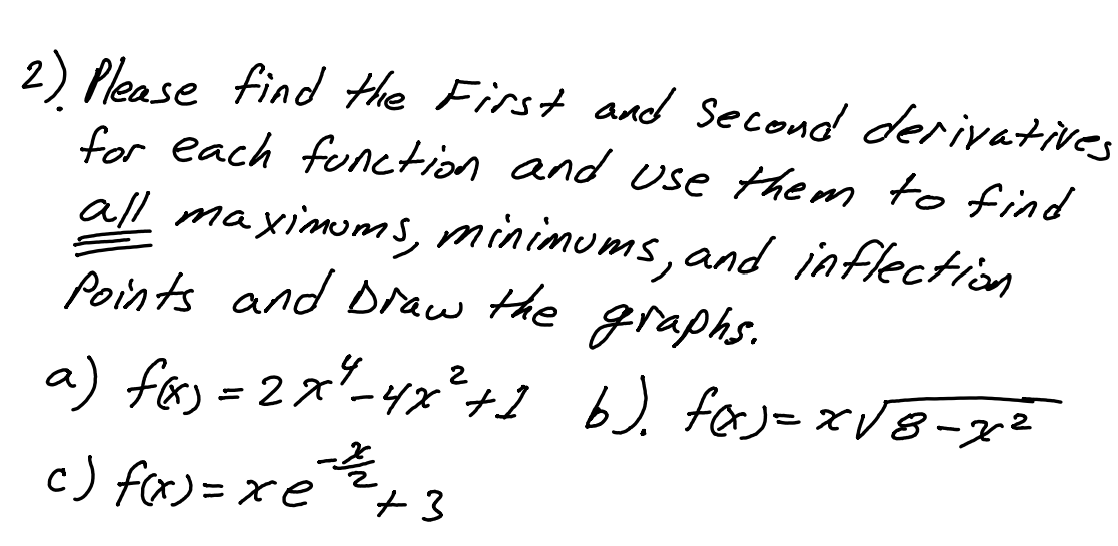 2). Please find the First and Second derivatives
for each function and use them to find
all maximums, minimums, and inflection
Points and Draw the graphs.
a) f(x) = 2x⁴-4x²+1 b). f(x)= x√(8-x²)
c) f(x) = xe^(-x/2) + 3